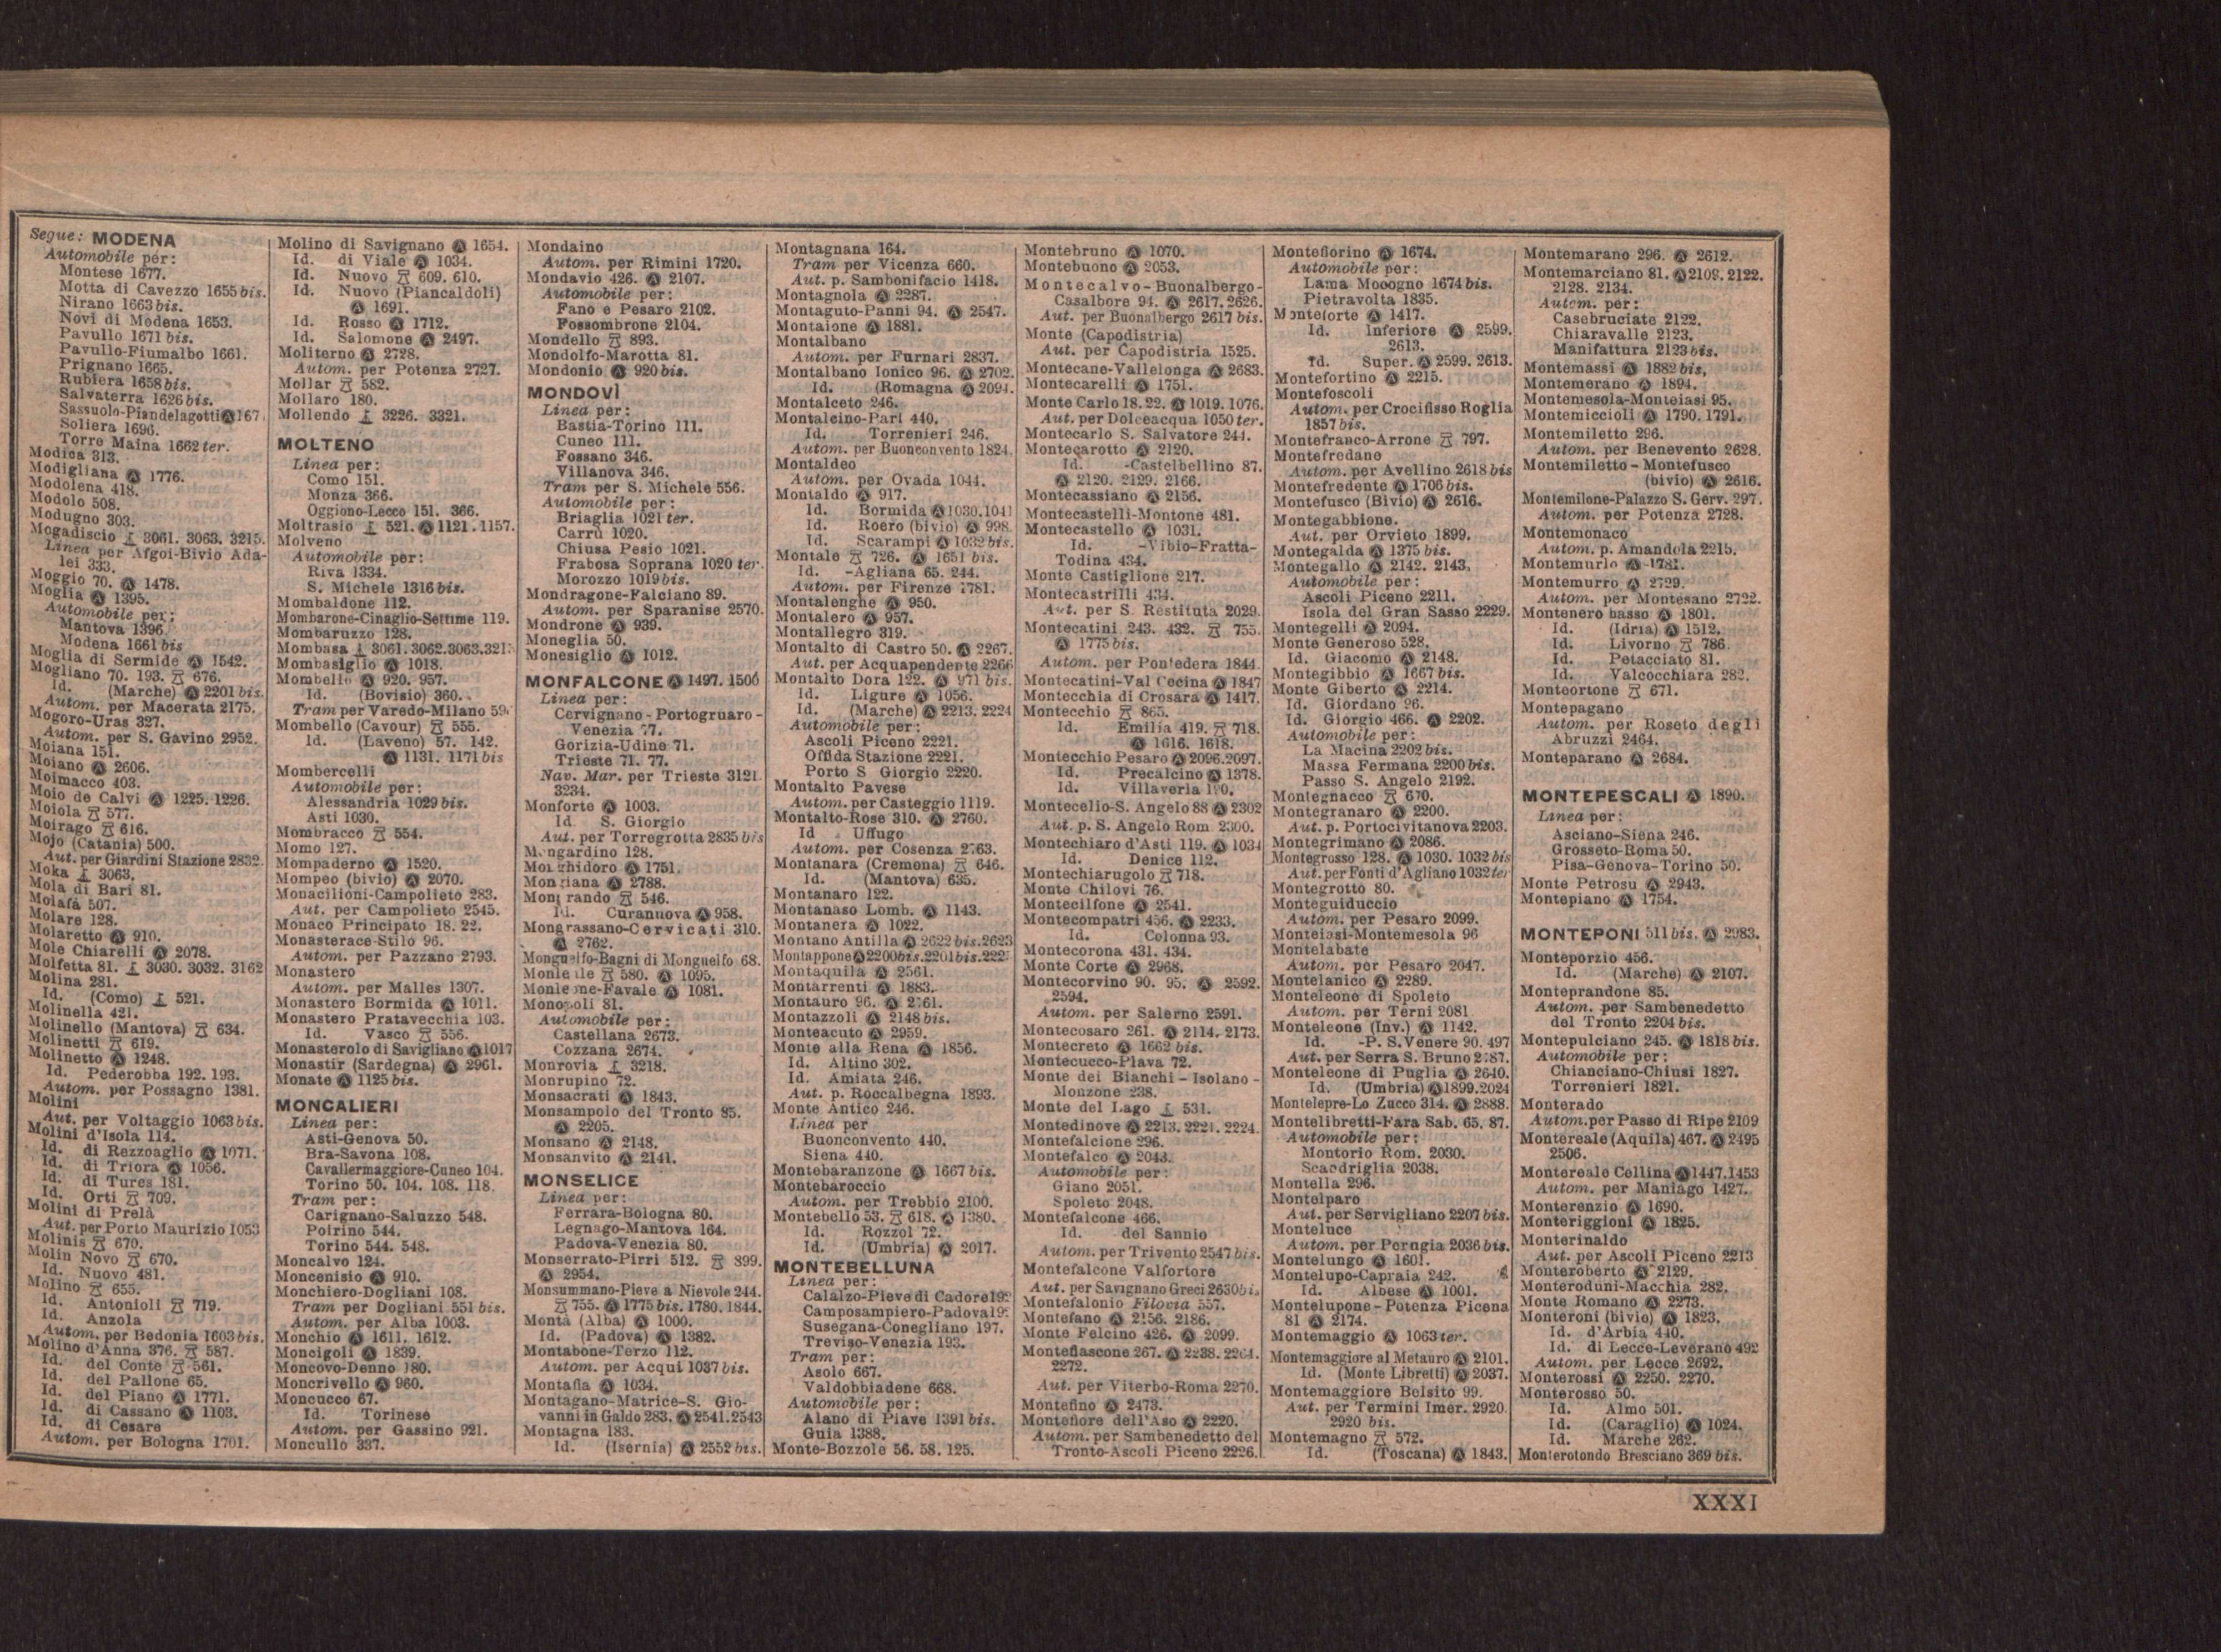 Segue: MODENA
Automobile per:
Montese 1677.
Motta di Cavezzo 1655 bis.
Nirano 1663 bis.
Novi di Modena 1653.
Pavullo 1671 bis.
Pavullo-Fiumalbo 1661.
Prignano 1665.
Rubiera 1658 bis.
Salvaterra 1626 bis.
Sassuolo-Piandelagotti Ⓐ 167
Soliera 1696.
Torre Maina 1662 ter.
Modica 313.
Modigliana Ⓐ 1776.
Modolena 418.
Modolo 508.
Modugno 303.
Mogadiscio 3061. 3063. 3215.
Linea per Afgoi-Bivio Ada-
lei 333.
Moggio 70. Ⓐ 1478.
Moglia Ⓐ 1395.
Automobile per:
Mantova 1396.
Modena 1661 bis
Moglia di Sermide Ⓐ 1542.
Mogliano 70. 193. 676.
Id. (Marche) Ⓐ 2201 bis.
Autom. per Macerata 2175.
Mogoro-Uras 327.
Autom. per S. Gavino 2952.
Moiana 151.
Moiano Ⓐ 2606.
Moimacco 403.
Moio de Calvi Ⓐ 1225. 1226.
Moiola 577.
Moirago 616.
Mojo (Catania) 500.
Aut. per Giardini Stazione 2832.
Moka 3063.
Mola di Bari 81.
Molafà 507.
Molare 128.
Molaretto Ⓐ 910.
Mole Chiarelli Ⓐ 2078.
Molfetta 81. 3030. 3032. 3162
Molina 281.
Id. (Como) 521.
Molinella 421.
Molinello (Mantova) 634.
Molinetti 619.
Molinetto Ⓐ 1248.
Id. Pederobba 192. 193.
Autom. per Possagno 1381.
Molini
Aut. per Voltaggio 1063 bis.
Molini d'Isola 114.
Id. di Rezzoaglio Ⓐ 1071.
Id. di Triora Ⓐ 1056.
Id. di Tures 181.
Id. Orti 709.
Molini di Prelà
Aut. per Porto Maurizio 1053
Molinis 670.
Molin Novo 670.
Id. Nuovo 481.
Molino 655.
Id. Antonioli 719.
Id. Anzola
Autom. per Bedonia 1603 bis.
Molino d'Anna 376. 587.
Id. del Conte 561.
Id. del Pallone 65.
Id. del Piano Ⓐ 1771.
Id. di Cassano Ⓐ 1103.
Id. di Cesare
Autom. per Bologna 1701.
Molino di Savignano Ⓐ 1654.
Id. di Viale Ⓐ 1034.
Id. Nuovo 609. 610.
Id. Nuovo (Piancaldoli)
Ⓐ 1691.
Id. Rosso Ⓐ 1712.
Id. Salomone Ⓐ 2497.
Moliterno Ⓐ 2728.
Autom. per Potenza 2727.
Mollar 582.
Mollaro 180.
Mollendo 3226. 3321.
MOLTENO
Linea per:
Como 151.
Monza 366.
Oggiono-Lecco 151. 366.
Moltrasio 521. Ⓐ 1121. 1157.
Molveno
Automobile per:
Riva 1334.
S. Michele 1316 bis.
Mombaldone 112.
Mombarone-Cinaglio-Settime 119.
Mombaruzzo 128.
Mombasa 3061. 3062. 3063. 321
Mombasiglio Ⓐ 1018.
Mombello Ⓐ 920. 957.
Id. (Bovisio) 360.
Tram per Varedo-Milano 59
Mombello (Cavour) 555.
Id. (Laveno) 57. 142.
Ⓐ 1131. 1171 bis
Mombercelli
Automobile per:
Alessandria 1029 bis.
Asti 1030.
Mombracco 554.
Momo 127.
Mompaderno Ⓐ 1520.
Mompeo (bivio) Ⓐ 2070.
Monacilioni-Campolieto 283.
Aut. per Campolieto 2545.
Monaco Principato 18. 22.
Monasterace-Stilo 96.
Autom. per Pazzano 2793.
Monastero
Autom. per Malles 1307.
Monastero Bormida Ⓐ 1011.
Monastero Pratavecchia 103.
Id. Vasco 556.
Monasterolo di Savigliano Ⓐ 1017
Monastir (Sardegna) Ⓐ 2961.
Monate Ⓐ 1125 bis.
MONCALIERI
Linea per:
Asti-Genova 50.
Bra-Savona 108.
Cavallermaggiore-Cuneo 104.
Torino 50. 104. 108. 118.
Tram per:
Carignano-Saluzzo 548.
Poirino 544.
Torino 544. 548.
Moncalvo 124.
Moncenisio Ⓐ 910.
Monchiero-Dogliani 108.
Tram per Dogliani 551 bis.
Autom. per Alba 1003.
Monchio Ⓐ 1611. 1612.
Moncigoli Ⓐ 1839.
Moncovo-Denno 180.
Moncrivello Ⓐ 960.
Moncucco 67.
Id. Torinese
Autom. per Gassino 921.
Moncullo 337.
Mondaino
Autom. per Rimini 1720.
Mondavio 426. Ⓐ 2107.
Automobile per:
Fano e Pesaro 2102.
Fossombrone 2104.
Mondello 893.
Mondolfo-Marotta 81.
Mondonio Ⓐ 920 bis.
MONDOVÌ
Linea per:
Bastia-Torino 111.
Cuneo 111.
Fossano 346.
Villanova 346.
Tram per S. Michele 556.
Automobile per:
Briaglia 1021 ter.
Carrù 1020.
Chiusa Pesio 1021.
Frabosa Soprana 1020 ter.
Morozzo 1019 bis.
Mondragone-Falciano 89.
Autom. per Sparanise 2570.
Mondrone Ⓐ 939.
Moneglia 50.
Monesiglio Ⓐ 1012.
MONFALCONE Ⓐ 1497. 1506
Linea per:
Cervignano-Portogruaro-
Venezia 77.
Gorizia-Udine 71.
Trieste 71. 77.
Nav. Mar. per Trieste 3121.
3234.
Monforte Ⓐ 1003.
Id. S. Giorgio
Aut. per Torregrotta 2835 bis
Mongardino 128.
Monghidoro Ⓐ 1751.
Mongiana Ⓐ 2788.
Mongrando 546.
Id. Curanuova Ⓐ 958.
Mongrassano-Cervicati 310.
Ⓐ 2762.
Monguelfo-Bagni di Monguelfo 68.
580. Ⓐ 1095.
-Favale Ⓐ 1081.
Monopoli 81.
Automobile per:
Castellana 2673.
Cozzana 2674.
Monrovia 3218.
Monrupino 72.
Monsacrati Ⓐ 1843.
Monsampolo del Tronto 85.
Ⓐ 2205.
Monsano Ⓐ 2148.
Monsanvito Ⓐ 2141.
MONSELICE
Linea per:
Ferrara-Bologna 80.
Legnago-Mantova 164.
Padova-Venezia 80.
Monserrato-Pirri 512. 899.
Ⓐ 2954.
Monsummano-Pieve a Nievole 244.
755. Ⓐ 1775 bis. 1780. 1844.
Montà (Alba) Ⓐ 1000.
Id. (Padova) Ⓐ 1382.
Montabone-Terzo 112.
Autom. per Acqui 1037 bis.
Montafia Ⓐ 1034.
Montagano-Matrice-S. Gio-
vanni in Galdo 283. Ⓐ 2541. 2543
Montagna 183.
Id. (Isernia) Ⓐ 2552 bis.
Montagnana 164.
Tram per Vicenza 660.
Aut. p. Sambonifacio 1418.
Montagnola Ⓐ 2287.
Montaguto-Panni 94. Ⓐ 2547.
Montaione Ⓐ 1881.
Montalbano
Autom. per Furnari 2837.
Montalbano Ionico 96. Ⓐ 2702.
Id. (Romagna Ⓐ 2094.
Montalceto 246.
Montalcino-Pari 440.
Id. Torrenieri 246.
Autom. per Buonconvento 1824.
Montaldeo
Autom. per Ovada 1044.
Montaldo Ⓐ 917.
Id. Bormida Ⓐ 1030. 1041
Id. Roero (bivio) Ⓐ 998.
Id. Scarampi Ⓐ 1032 bis.
Montale 726. Ⓐ 1651 bis.
Id. -Agliana 65. 244.
Autom. per Firenze 1781.
Montalenghe Ⓐ 950.
Montalero Ⓐ 957.
Montallegro 319.
Montalto di Castro 50. Ⓐ 2267.
Aut. per Acquapendente 2266
Montalto Dora 122. Ⓐ 971 bis.
Id. Ligure Ⓐ 1056.
Id. (Marche) Ⓐ 2213. 2224
Automobile per:
Ascoli Piceno 2221.
Offida Stazione 2221.
Porto S Giorgio 2220.
Montalto Pavese
Autom. per Casteggio 1119.
Montalto-Rose 310. Ⓐ 2760.
Id. Uffugo
Autom. per Cosenza 2763.
Montanara (Cremona) 646.
Id. (Mantova) 635.
Montanaro 122.
Montanaso Lomb. Ⓐ 1143.
Montanera Ⓐ 1022.
Montano Antilia Ⓐ 2622 bis. 2623
Montappone Ⓐ 2200 bis. 2201 bis. 222
Montaquila Ⓐ 2561.
Montarrenti Ⓐ 1883.
Montauro 96. Ⓐ 2761.
Montazzoli Ⓐ 2148 bis.
Monteacuto Ⓐ 2959.
Monte alla Rena Ⓐ 1856.
Id. Altino 302.
Id. Amiata 246.
Aut. p. Roccalbegna 1893.
Monte Antico 246.
Linea per
Buonconvento 440.
Siena 440.
Montebaranzone Ⓐ 1667 bis.
Montebaroccio
Autom. per Trebbio 2100.
Montebello 53. 618. Ⓐ 1380.
Id. Rozzol 72.
Id. (Umbria) Ⓐ 2017.
MONTEBELLUNA
Linea per:
Calalzo-Pieve di Cadore 19
Camposampiero-Padova 19
Susegana-Conegliano 197.
Treviso-Venezia 193.
Tram per:
Asolo 667.
Valdobbiadene 668.
Automobile per:
Alano di Piave 1391 bis.
Guia 1388.
Monte-Bozzole 56. 58. 125.
Montebruno Ⓐ 1070.
Montebuono Ⓐ 2053.
Montecalvo-Buonalbergo-
Casalbore 94. Ⓐ 2617. 2626.
Aut. per Buonalbergo 2617 bis.
Monte (Capodistria)
Aut. per Capodistria 1525.
Montecane-Vallelonga Ⓐ 2683.
Montecarelli Ⓐ 1751.
Monte Carlo 18. 22. Ⓐ 1019. 1076.
Aut. per Dolceacqua 1050 ter.
Montecarlo S. Salvatore 244.
Montecarotto Ⓐ 2120.
Id. -Castelbellino 87.
Ⓐ 2120. 2129. 2166.
Montecassiano Ⓐ 2156.
Montecastelli-Montone 481.
Montecastello Ⓐ 1031.
Id. -Vibio-Fratta-
Todina 434.
Monte Castiglione 217.
Montecastrilli 434.
Aut. per S. Restituta 2029.
Montecatini 243. 432. 755.
Ⓐ 1775 bis.
Autom. per Pontedera 1844.
Montecatini-Val Cecina Ⓐ 1847
Montecchia di Crosara Ⓐ 1417.
Montecchio 865.
Id. Emilia 419. 718.
Ⓐ 1616. 1618.
Montecchio Pesaro Ⓐ 2096. 2097.
Id. Precalcino Ⓐ 1378.
Id. Villaveria
Montecelio-S. Angelo 88 Ⓐ 2302
Aut. p. S. Angelo Rom. 2300.
Montechiaro d'Asti 119. Ⓐ 1034
Id. Denice 112.
Montechiarugolo 718.
Monte Chilovi 76.
Montecilfone Ⓐ 2541.
Montecompatri 456. Ⓐ 2233.
Id. Colonna 93.
Montecorona 431. 434.
Monte Corte Ⓐ 2968.
Montecorvino 90. 95. Ⓐ 2592.
2594.
Autom. per Salerno 2591.
Montecosaro 261. Ⓐ 2114. 2173.
Montecreto Ⓐ 1662 bis.
Montecucco-Plava 72.
Monte dei Bianchi-Isolano-
Monzone 238.
Monte del Lago 531.
Montedinove Ⓐ 2213. 2221. 2224.
Montefalcione 296.
Montefalco Ⓐ 2043.
Automobile per:
Giano 2051.
Spoleto 2048.
Montefalcone 466.
Id. del Sannio
Autom. per Trivento 2547 bis.
Montefalcone Valfortore
Aut. per Savignano Greci 2630 bis
Montefalonio Filovia 557.
Montefano Ⓐ 2156. 2186.
Monte Felcino 426. Ⓐ 2099.
Montefiascone 267. Ⓐ 2238. 2264.
2272.
Aut. per Viterbo-Roma 2270.
Montefino Ⓐ 2473.
Montefiore dell'Aso Ⓐ 2220.
Autom. per Sambenedetto del
Tronto-Ascoli Piceno 2226.
Montefiorino Ⓐ 1674.
Automobile per:
Lama Mocogno 1674 bis.
Pietravolta 1835.
Monteforte Ⓐ 1417.
Id. Inferiore Ⓐ 2599.
2613.
Id. Super. Ⓐ 2599. 2613.
Montefortino Ⓐ 2215.
Montefoscoli
Autom. per Crocifisso Roglia
1857 bis.
Montefranco-Arrone 797.
Montefredane
Autom. per Avellino 2618 bis
Montefredente Ⓐ 1706 bis.
Montefusco (Bivio) Ⓐ 2616.
Montegabbione.
Aut. per Orvieto 1899.
Montegalda Ⓐ 1375 bis.
Montegallo Ⓐ 2142. 2143.
Automobile per:
Ascoli Piceno 2211.
Isola del Gran Sasso 2229.
Montegelli Ⓐ 2094.
Monte Generoso 528.
Id. Giacomo Ⓐ 2148.
Montegibbio Ⓐ 1667 bis.
Monte Giberto Ⓐ 2214.
Id. Giordano 96.
Id. Giorgio 466. Ⓐ 2202.
Automobile per:
La Macina 2202 bis.
Massa Fermana 2200 bis.
Passo S. Angelo 2192.
Montegnacco 670.
Montegranaro Ⓐ 2200.
Aut. p. Portocivitanova 2203.
Montegrimano Ⓐ 2086.
Montegrosso 128. Ⓐ 1030. 1032 bis
Aut. per Fonti d'Agliano 1032 ter
Montegrotto 80.
Monteguiduccio
Autom. per Pesaro 2099.
Monteiasi-Montemesola 96
Montelabate
Autom. per Pesaro 2047.
Montelanico Ⓐ 2289.
Monteleone di Spoleto
Autom. per Terni 2081
Monteleone (Inv.) Ⓐ 1142.
Id. -P. S. Venere 90. 497
Aut. per Serra S. Bruno 2787.
Monteleone di Puglia Ⓐ 2640.
Id. (Umbria) Ⓐ 1899. 2024
Montelepre-Lo Zucco 314. Ⓐ 2888.
Montelibretti-Fara Sab. 65. 87.
Automobile per:
Montorio Rom. 2030.
Scandriglia 2038.
Montella 296.
Montelparo
Aut. per Servigliano 2207 bis.
Monteluce
Autom. per Perugia 2036 bis.
Montelungo Ⓐ 1601.
Montelupo-Capraia 242.
Id. Albese Ⓐ 1001.
Montelupone-Potenza Picena
81 Ⓐ 2174.
Montemaggio Ⓐ 1063 ter.
Montemaggiore al Metauro Ⓐ 2101.
Id. (Monte Libretti) Ⓐ 2037.
Montemaggiore Belsito 99.
Aut. per Termini Imer. 2920.
2920 bis.
Montemagno 572.
Id. (Toscana) Ⓐ 1843.
Montemarano 296. Ⓐ 2612.
Montemarciano 81. Ⓐ 2109. 2122.
2128. 2134.
Autom. per:
Casebruciate 2122.
Chiaravalle 2123.
Manifattura 2123 bis.
Montemassi Ⓐ 1882 bis,
Montemerano Ⓐ 1894.
Montemesola-Monteiasi 95.
Montemiccioli Ⓐ 1790. 1791.
Montemiletto 296.
Autom. per Benevento 2628.
Montemiletto-Montefusco
(bivio) Ⓐ 2616.
Montemilone-Palazzo S. Gerv. 297.
Autom. per Potenza 2728.
Montemonaco
Autom. p. Amandola 2215.
Montemurlo Ⓐ 1781.
Montemurro Ⓐ 2729.
Autom. per Montesano 2722.
Montenero basso Ⓐ 1801.
Id. (Idria) Ⓐ 1512.
Id. Livorno 786.
Id. Petacciato 81.
Id. Valcocchiara 282.
Monteortone 671.
Montepagano
Autom. per Roseto degli
Abruzzi 2464.
Monteparano Ⓐ 2684.
MONTEPESCALI Ⓐ 1890.
Linea per:
Asciano-Siena 246.
Grosseto-Roma 50.
Pisa-Genova-Torino 50.
Monte Petrosu Ⓐ 2943.
Montepiano Ⓐ 1754.
MONTEPONI 511 bis. Ⓐ 2983.
Monteporzio 456.
Id. (Marche) Ⓐ 2107.
Monteprandone 85.
Autom. per Sambenedetto
del Tronto 2204 bis.
Montepulciano 245. Ⓐ 1818 bis.
Automobile per:
Chianciano-Chiusi 1827.
Torrenieri 1821.
Monterado
Autom. per Passo di Ripe 2109
Montereale (Aquila) 467. Ⓐ 2495
2506.
Montereale Cellina Ⓐ 1447. 1453
Autom. per Maniago 1427.
Monterenzio Ⓐ 1690.
Monteriggioni Ⓐ 1825.
Monterinaldo
Aut. per Ascoli Piceno 2213
Monteroberto Ⓐ 2129.
Monteroduni-Macchia 282.
Monte Romano Ⓐ 2273.
Monteroni (bivio) Ⓐ 1823.
Id. d'Arbia 440.
Id. di Lecce-Leverano 492
Autom. per Lecce 2692.
Monterossi Ⓐ 2250. 2270.
Monterosso 50.
Id. Almo 501.
Id. (Caraglio) Ⓐ 1024.
Id. Marche 262.
Monterotondo Bresciano 369 bis.
XXXI